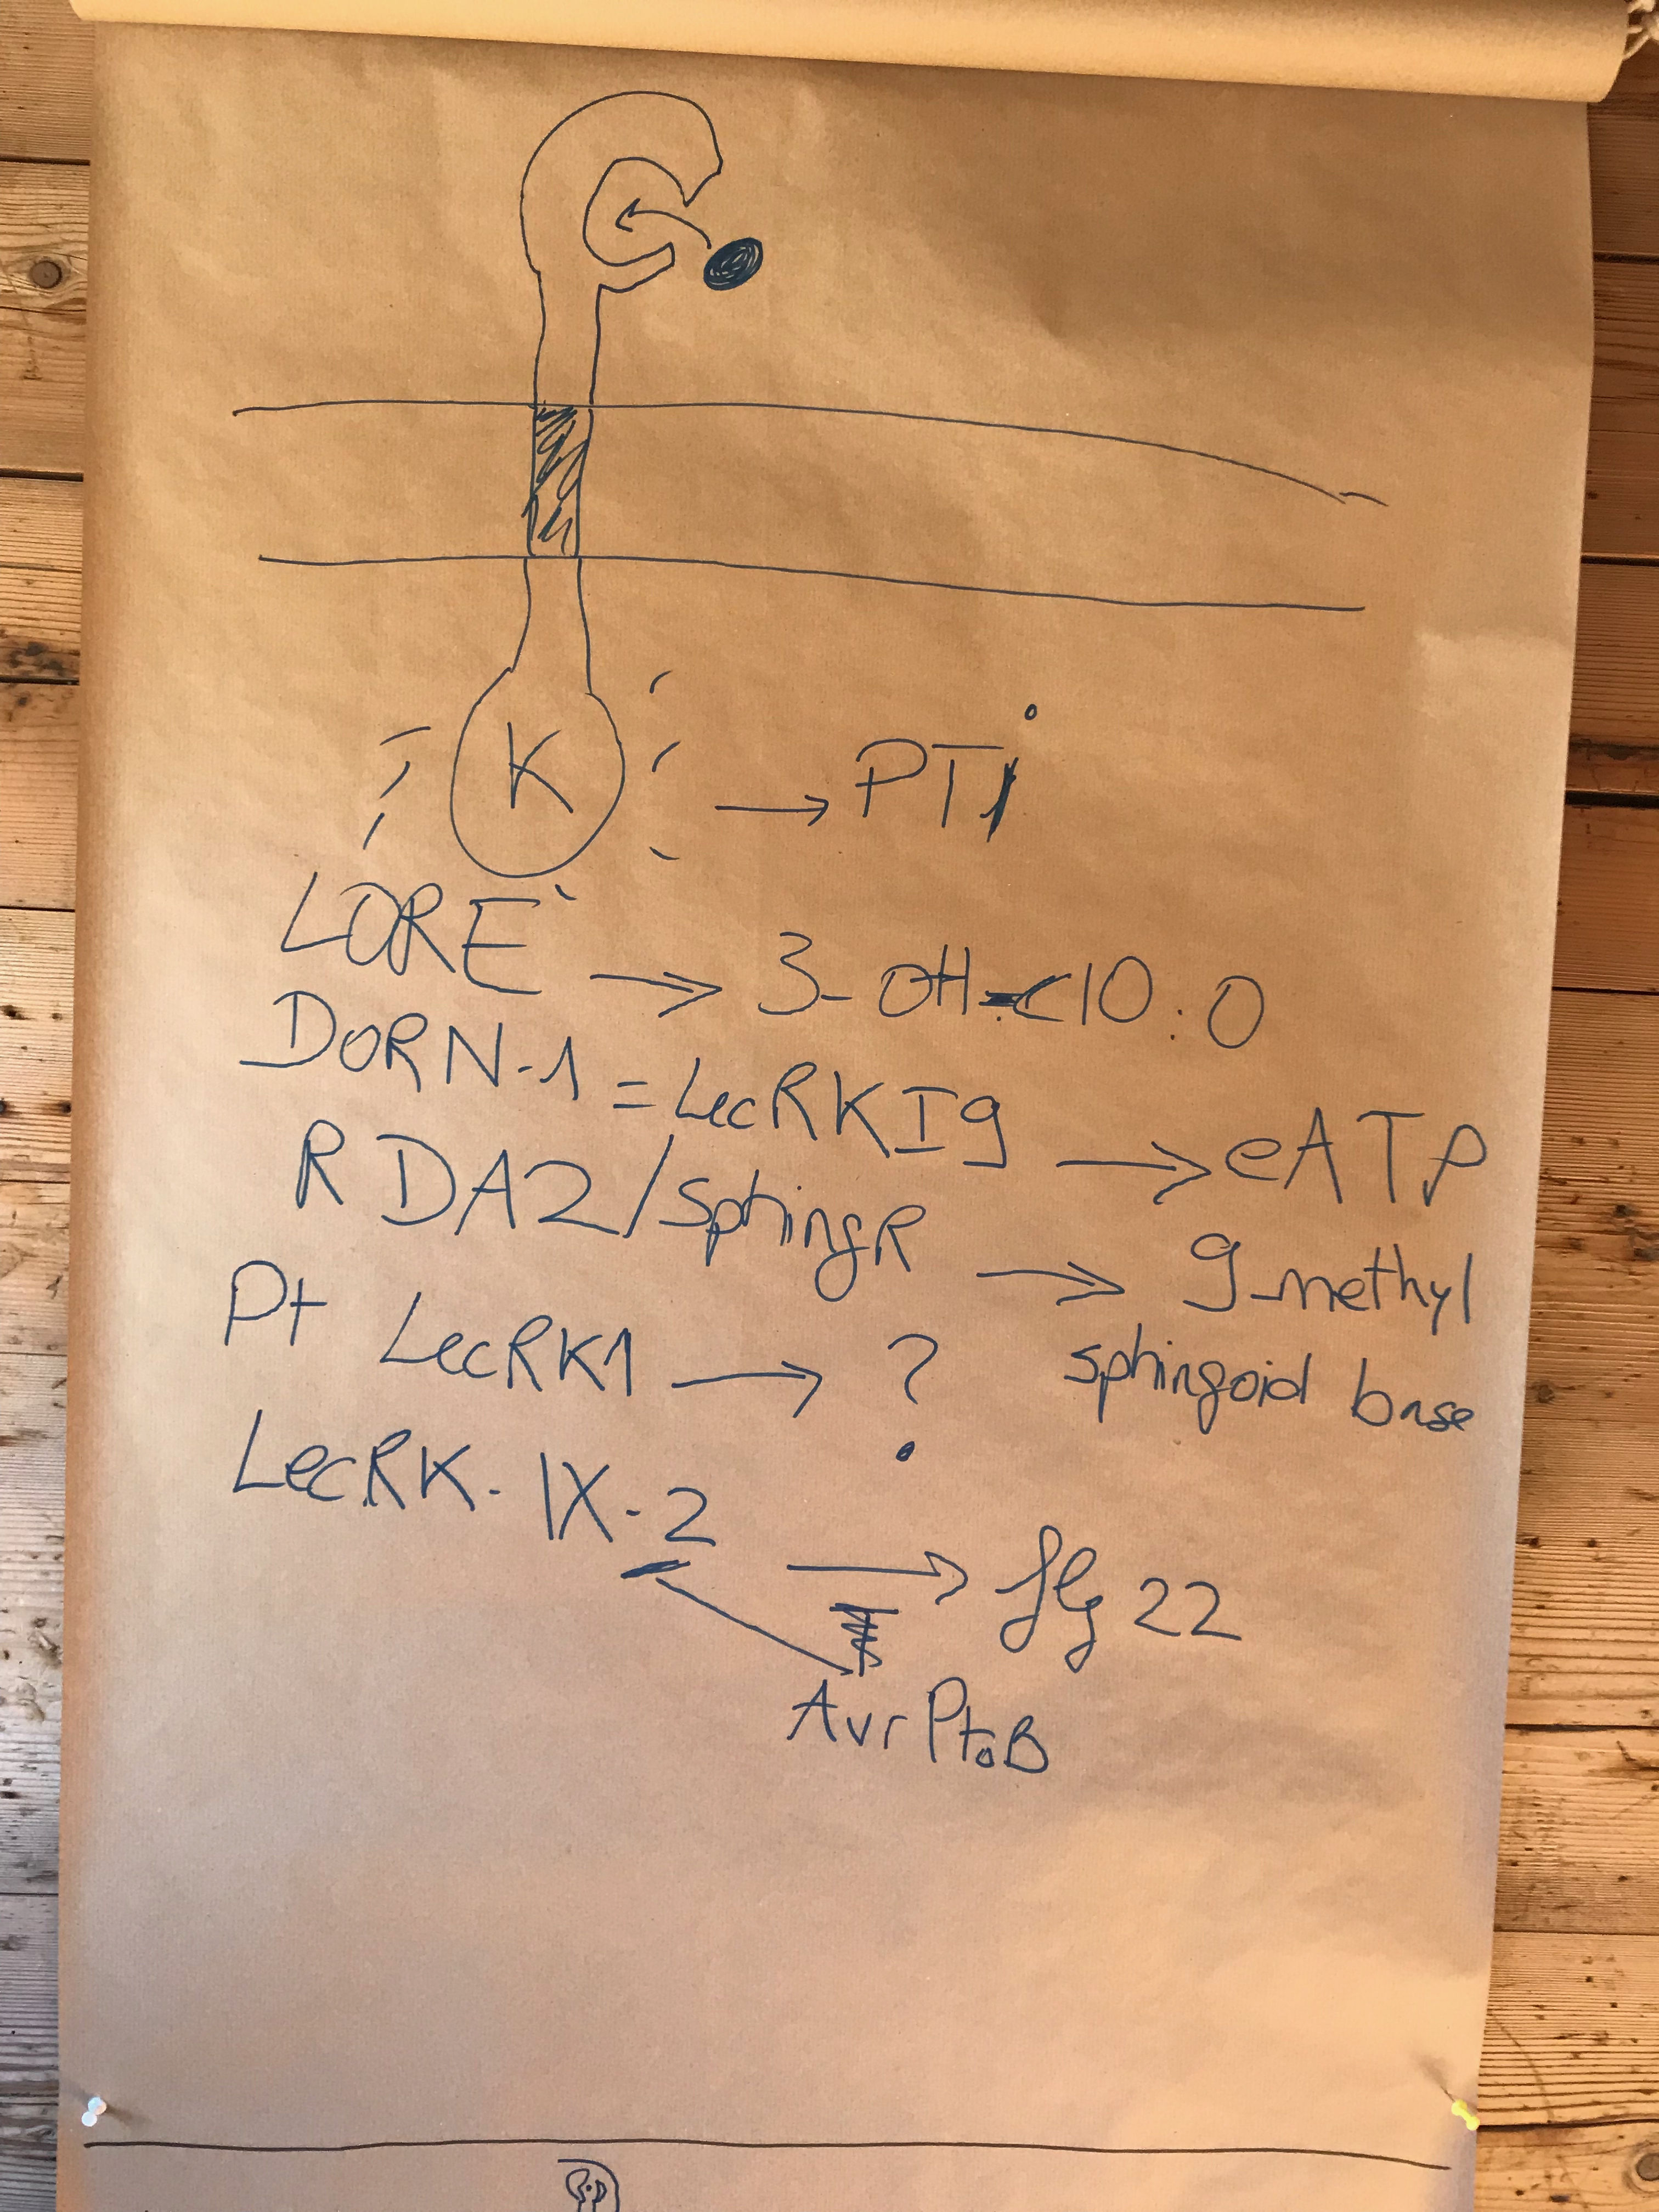 K → PTi
LORE → 3-OH-C10:0
DORN-1 = LecRKI9 → eATP
RDA2/SphingR → 9-methyl
sphingoid base
Pt LecRK1 → ?
LecRK-IX-2 → flg 22
AvrPtoB